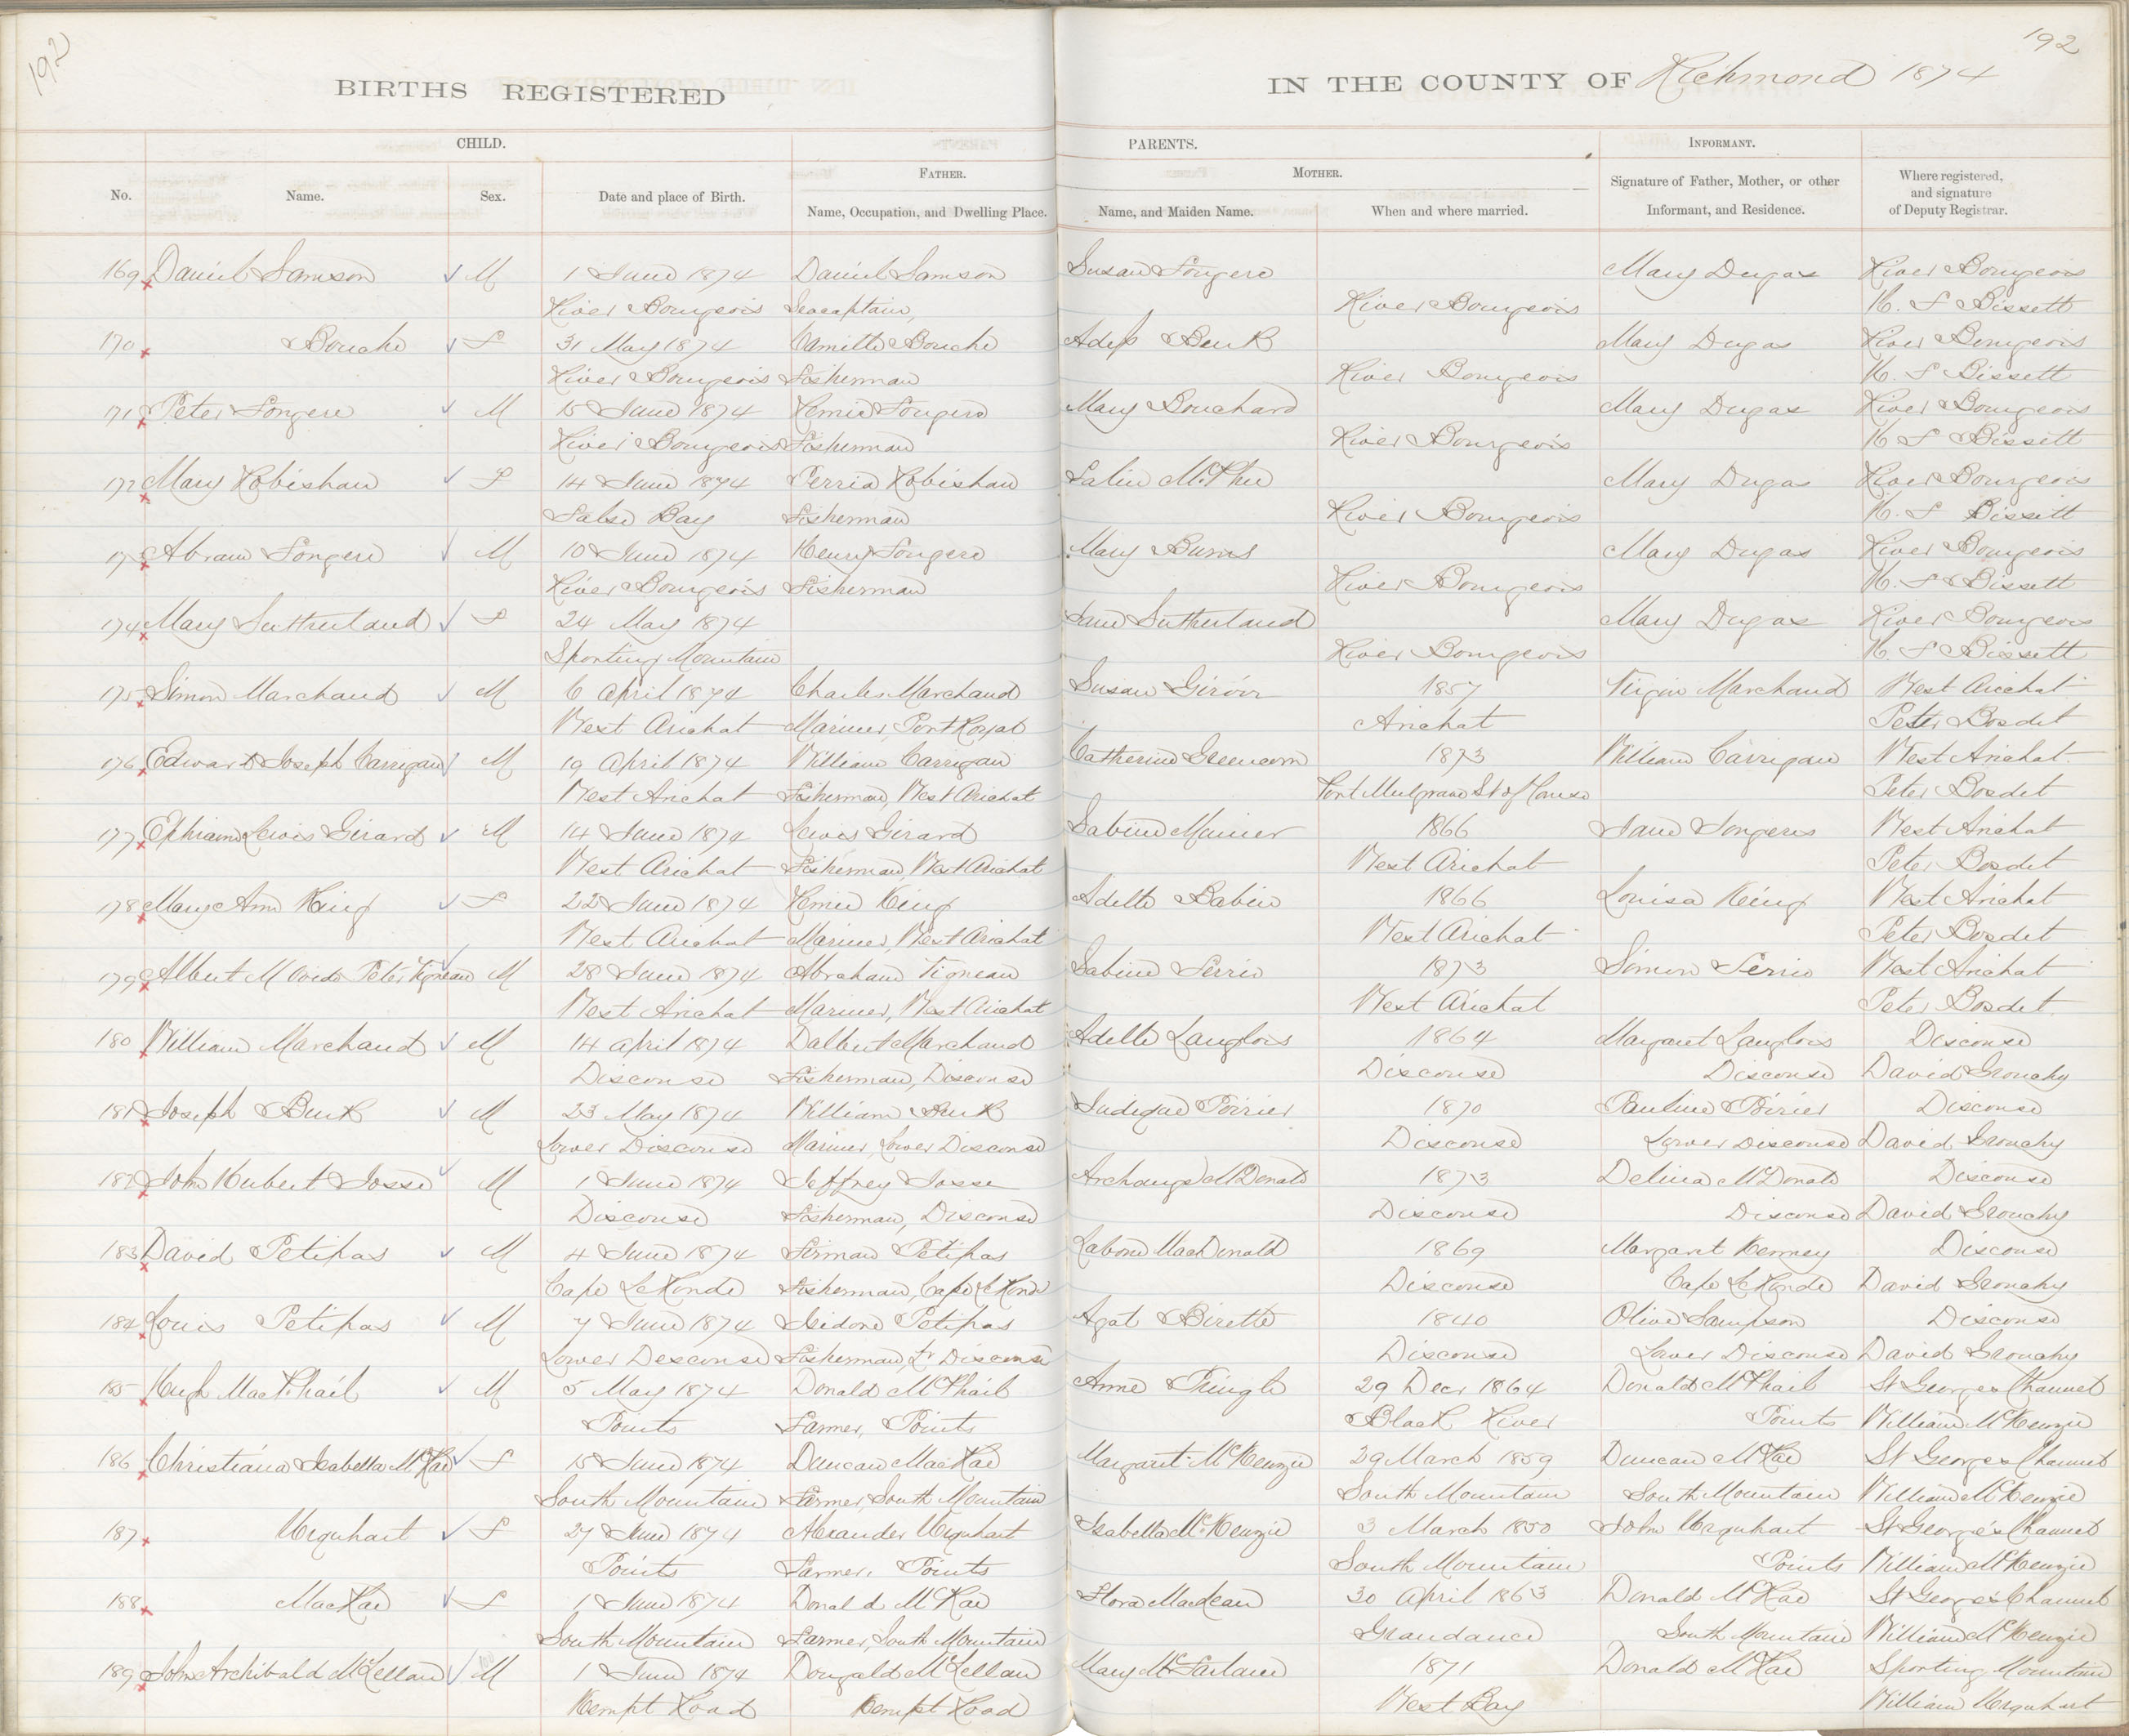 192
192
BIRTHS REGISTERED IN THE COUNTY OF Richmond 1874
CHILD. PARENTS. INFORMANT.
FATHER. MOTHER.
No. Name. Sex. Date and place of Birth. Name, Occupation, and Dwelling Place. Name, and Maiden Name. When and where married. Signature of Father, Mother, or other Informant, and Residence. Where registered, and signature of Deputy Registrar.
169 Daniel Samson M 1 June 1874 Daniel Samson Susan Fougere Mary Dugas River Bourgeois
River Bourgeois Seacaptain, River Bourgeois H. F Bissett
170 Bouche F 31 May 1874 Camille Bouche Adele Burk Mary Dugas River Bourgeois
River Bourgeois Fisherman River Bourgeois H. F Bissett
171 Peter Fongere M 15 June 1874 Remie Fougere Mary Bouchard Mary Dugas River Bourgeois
River Bourgeois Fisherman River Bourgeois H F Bissett
172 Mary Robishaw F 14 June 1874 Perria Robishaw McPhee Mary Dugas River Bourgeois
False Bay Fisherman River Bourgeois H. F Bissett
173 Abram Fongere M 10 June 1874 Henry Fougere Mary Burns Mary Dugas River Bourgeois
River Bourgeois Fisherman River Bourgeois H. F Bissett
174 Mary Sutherland F 24 May 1874 Jane Sutherland Mary Dugas River Bourgeois
Sporting Mountain River Bourgeois H. F Bissett
175 Simon Marchand M 6 April 1874 Charles Marchand Susan Giroir 1857 Virgin Marchand West Arichat
West Arichat Mariner, Port Royal Arichat Peter Bosdet
176 Edward Joseph Carrigan M 19 April 1874 William Carrigan Catherine Greencorn 1873 William Carrigan West Arichat
West Arichat Fisherman, West Arichat Port Mulgrave St of Canso Peter Bosdet
177 Ephiam Lewis Girard M 14 June 1874 Lewis Girard Sabine Mainer 1866 Jane Fongere West Arichat
West Arichat Fisherman, West Arichat West Arichat Peter Bosdet
178 Mary Ann King F 22 June 1874 Remie King Adelle Babin 1866 Louisa King West Arichat
West Arichat Mariner, West Arichat West Arichat Peter Bosdet
179 Albert M Peter Vigneau M 28 June 1874 Abraham Vigneau Sabine Ferrio 1873 Simon Ferrio West Arichat
West Arichat Mariner, West Arichat West Arichat Peter Bosdet
180 William Marchand M 14 April 1874 Dalbert Marchand Adelle Langlois 1864 Margaret Langlois Discouse
Discouse Fisherman, Discouse Discouse Discouse David Grouchy
181 Joseph Burk M 23 May 1874 William Burk Judique Poirier 1870 Pauline Poirier Discouse
Lower Discouse Mariner, Lower Discouse Discouse Lower Discouse David Grouchy
182 John Hubert Josse M 1 June 1874 Jeffrey Josse Archange McDonald 1873 Delina McDonald Discouse
Discouse Fisherman, Discouse Discouse Discouse David Grouchy
183 David Petipas M 4 June 1874 Firman Petipas Labone MacDonald 1869 Margaret Kenney Discouse
Cape LeRonde Fisherman, Cape LeRonde Discouse Cape LeRonde David Grouchy
184 Louis Petipas M 7 June 1874 Isidore Petipas Agat Birette 1840 Olive Sampson Discouse
Lower Descouse Fisherman, Lr Discouse Discouse Lower Discouse David Grouchy
185 Hugh MacPhail M 5 May 1874 Donald McPhail Anne Pringle 29 Decr 1864 Donald McPhail St Georges Channel
Points Farmer, Points Black River Points William McKenzie
186 Christiana Isabella McRae F 15 June 1874 Duncan MacRae Margaret McKenzie 29 March 1859 Duncan McRae St Georges Channel
South Mountain Farmer, South Mountain South Mountain South Mountain William McKenzie
187 Urquhart F 27 June 1874 Alexander Urquhart Isabella McKenzie 3 March 1850 John Urquhart St George's Channel
Points Farmer, Points South Mountain Points William McKenzie
188 MacRae F 1 June 1874 Donald McRae Flora MacLean 30 April 1863 Donald McRae St George's Channel
South Mountain Farmer, South Mountain Grandance South Mountain William McKenzie
189 John Archibald McLellan M 1 June 1874 Dougald McLellan Mary McFarlane 1871 Donald McRae Sporting Mountain
Kempt Road Kempt Road West Bay William Urquhart